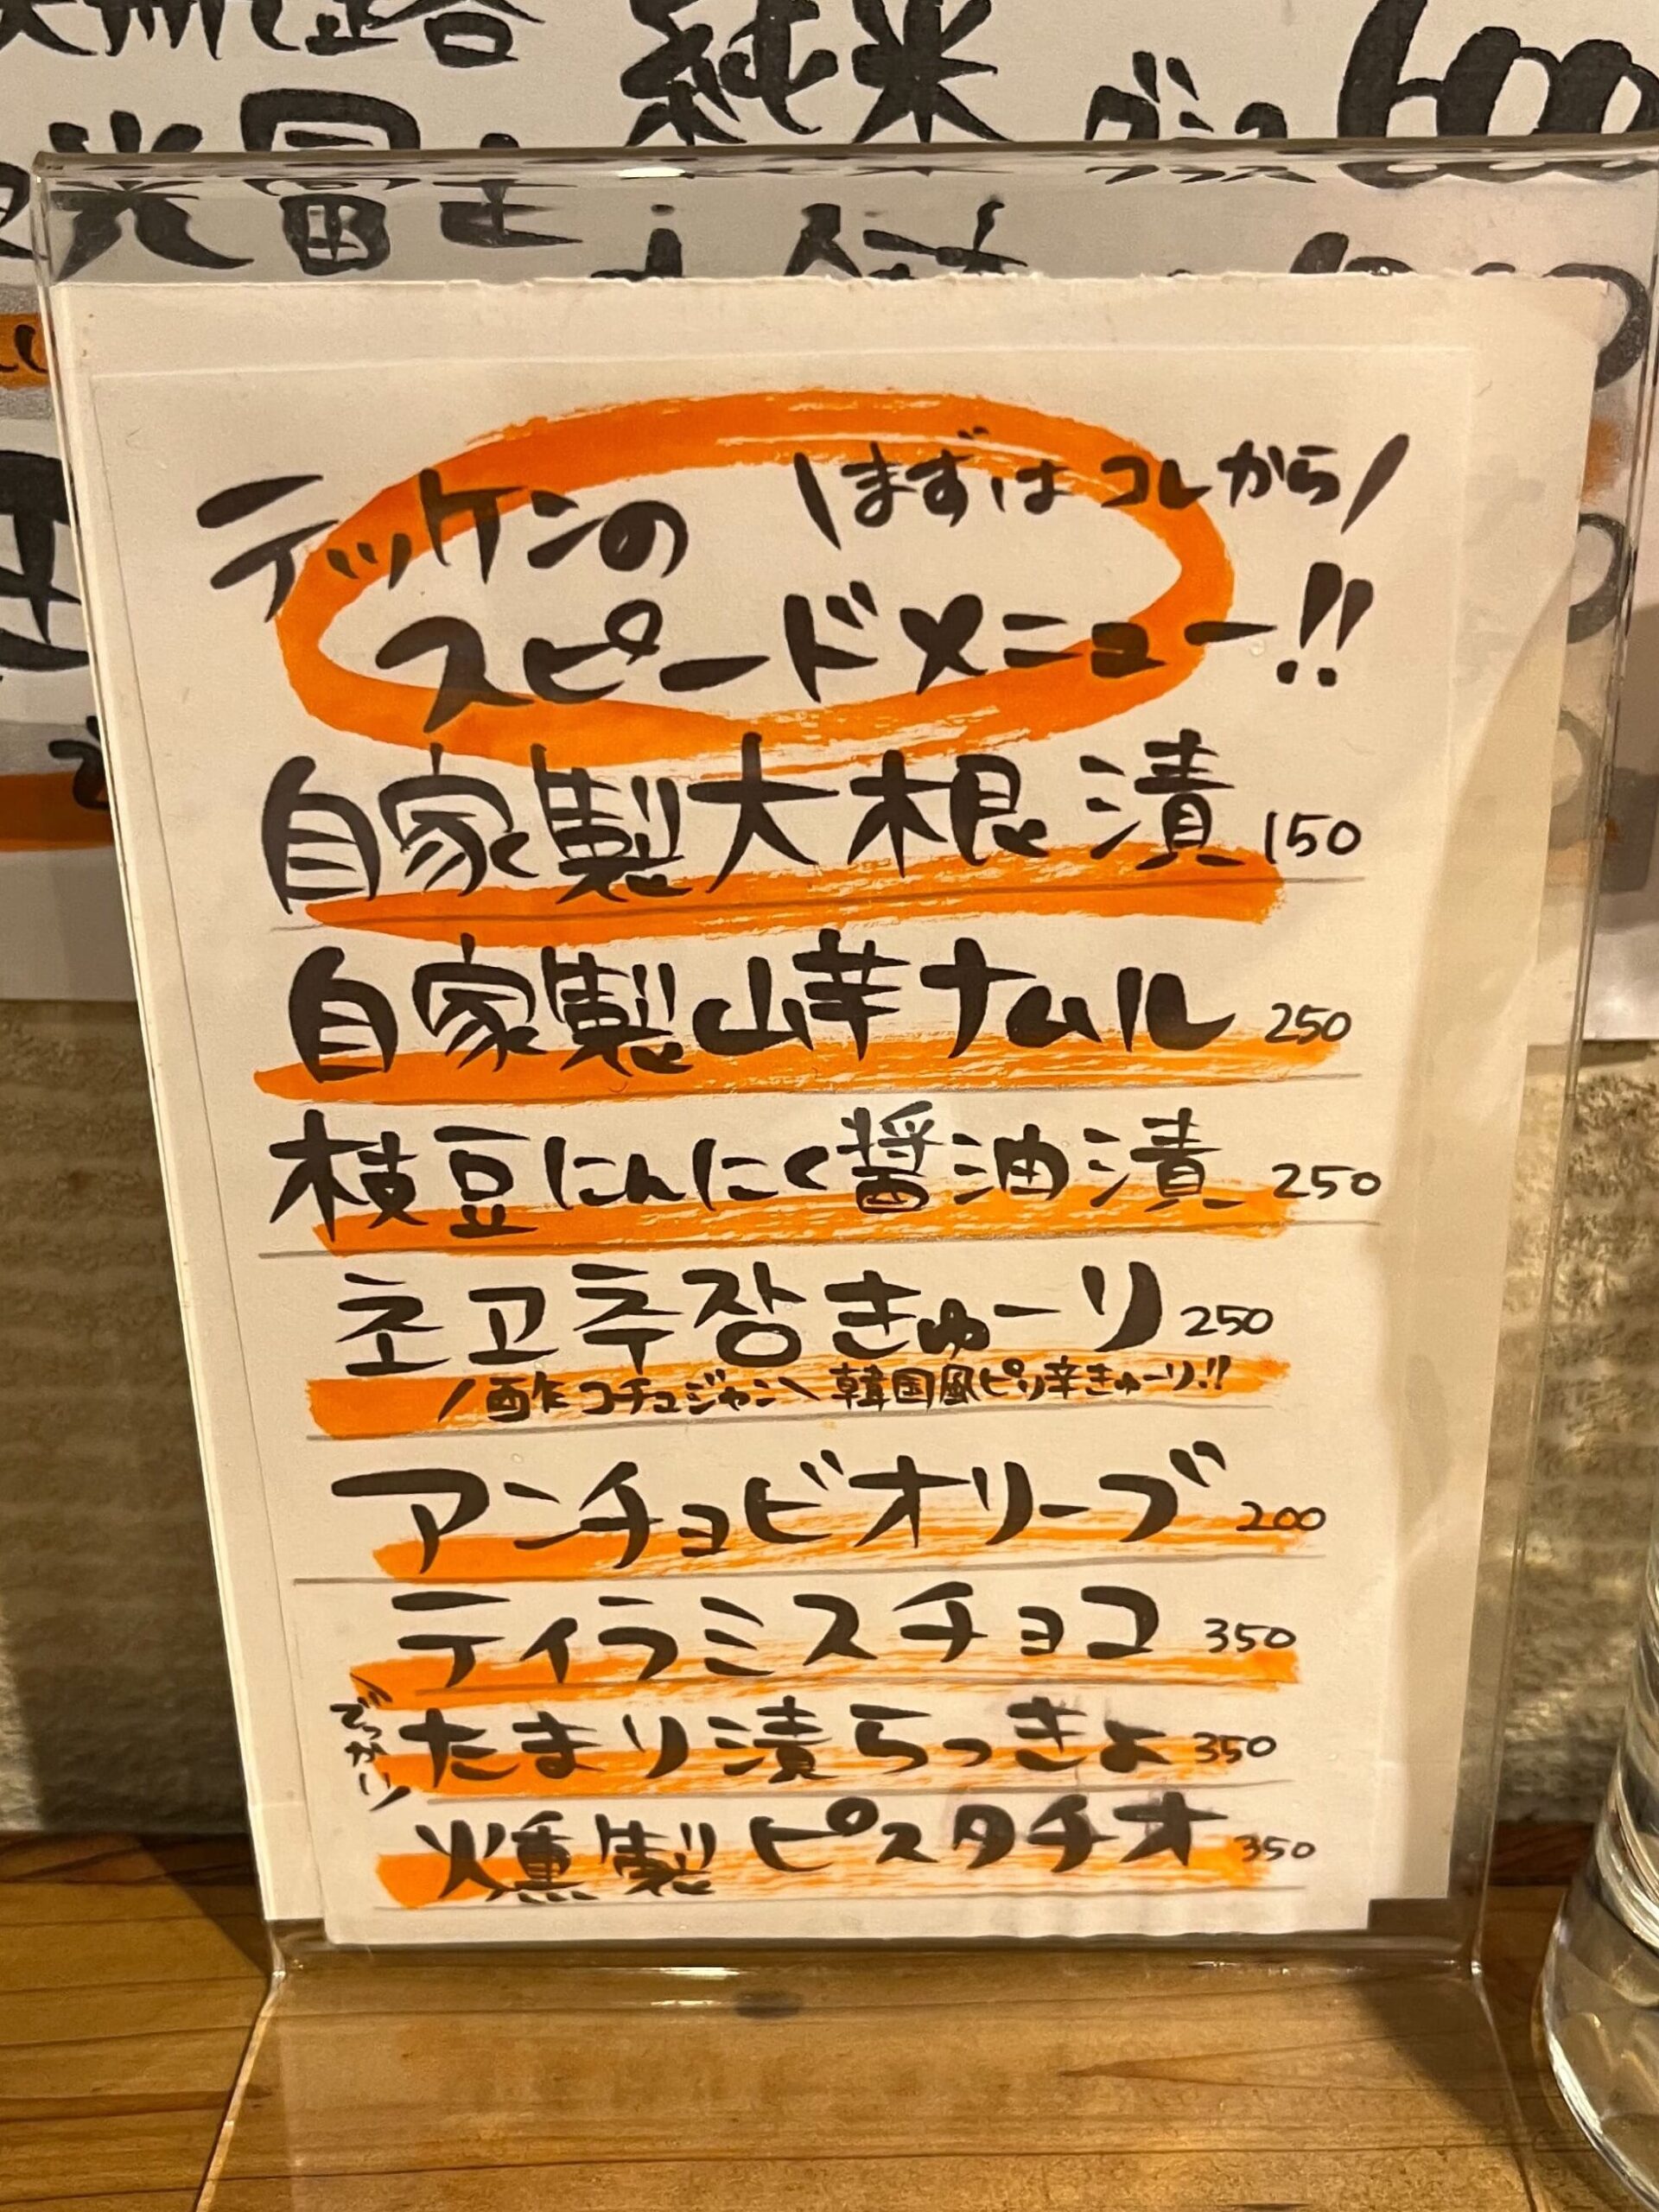 純米 グラス 600
テッケンの
\まずはコレから/
スピードメニュー!!
自家製大根漬 150
自家製山芋ナムル 250
枝豆にんにく醤油漬 250
초고추장きゅーり 250
/酢コチュジャン\ 韓国風ピリ辛きゅーり!!
アンチョビオリーブ 200
ティラミスチョコ 350
でっかり
たまり漬らっきょ 350
燻製ピスタチオ 350